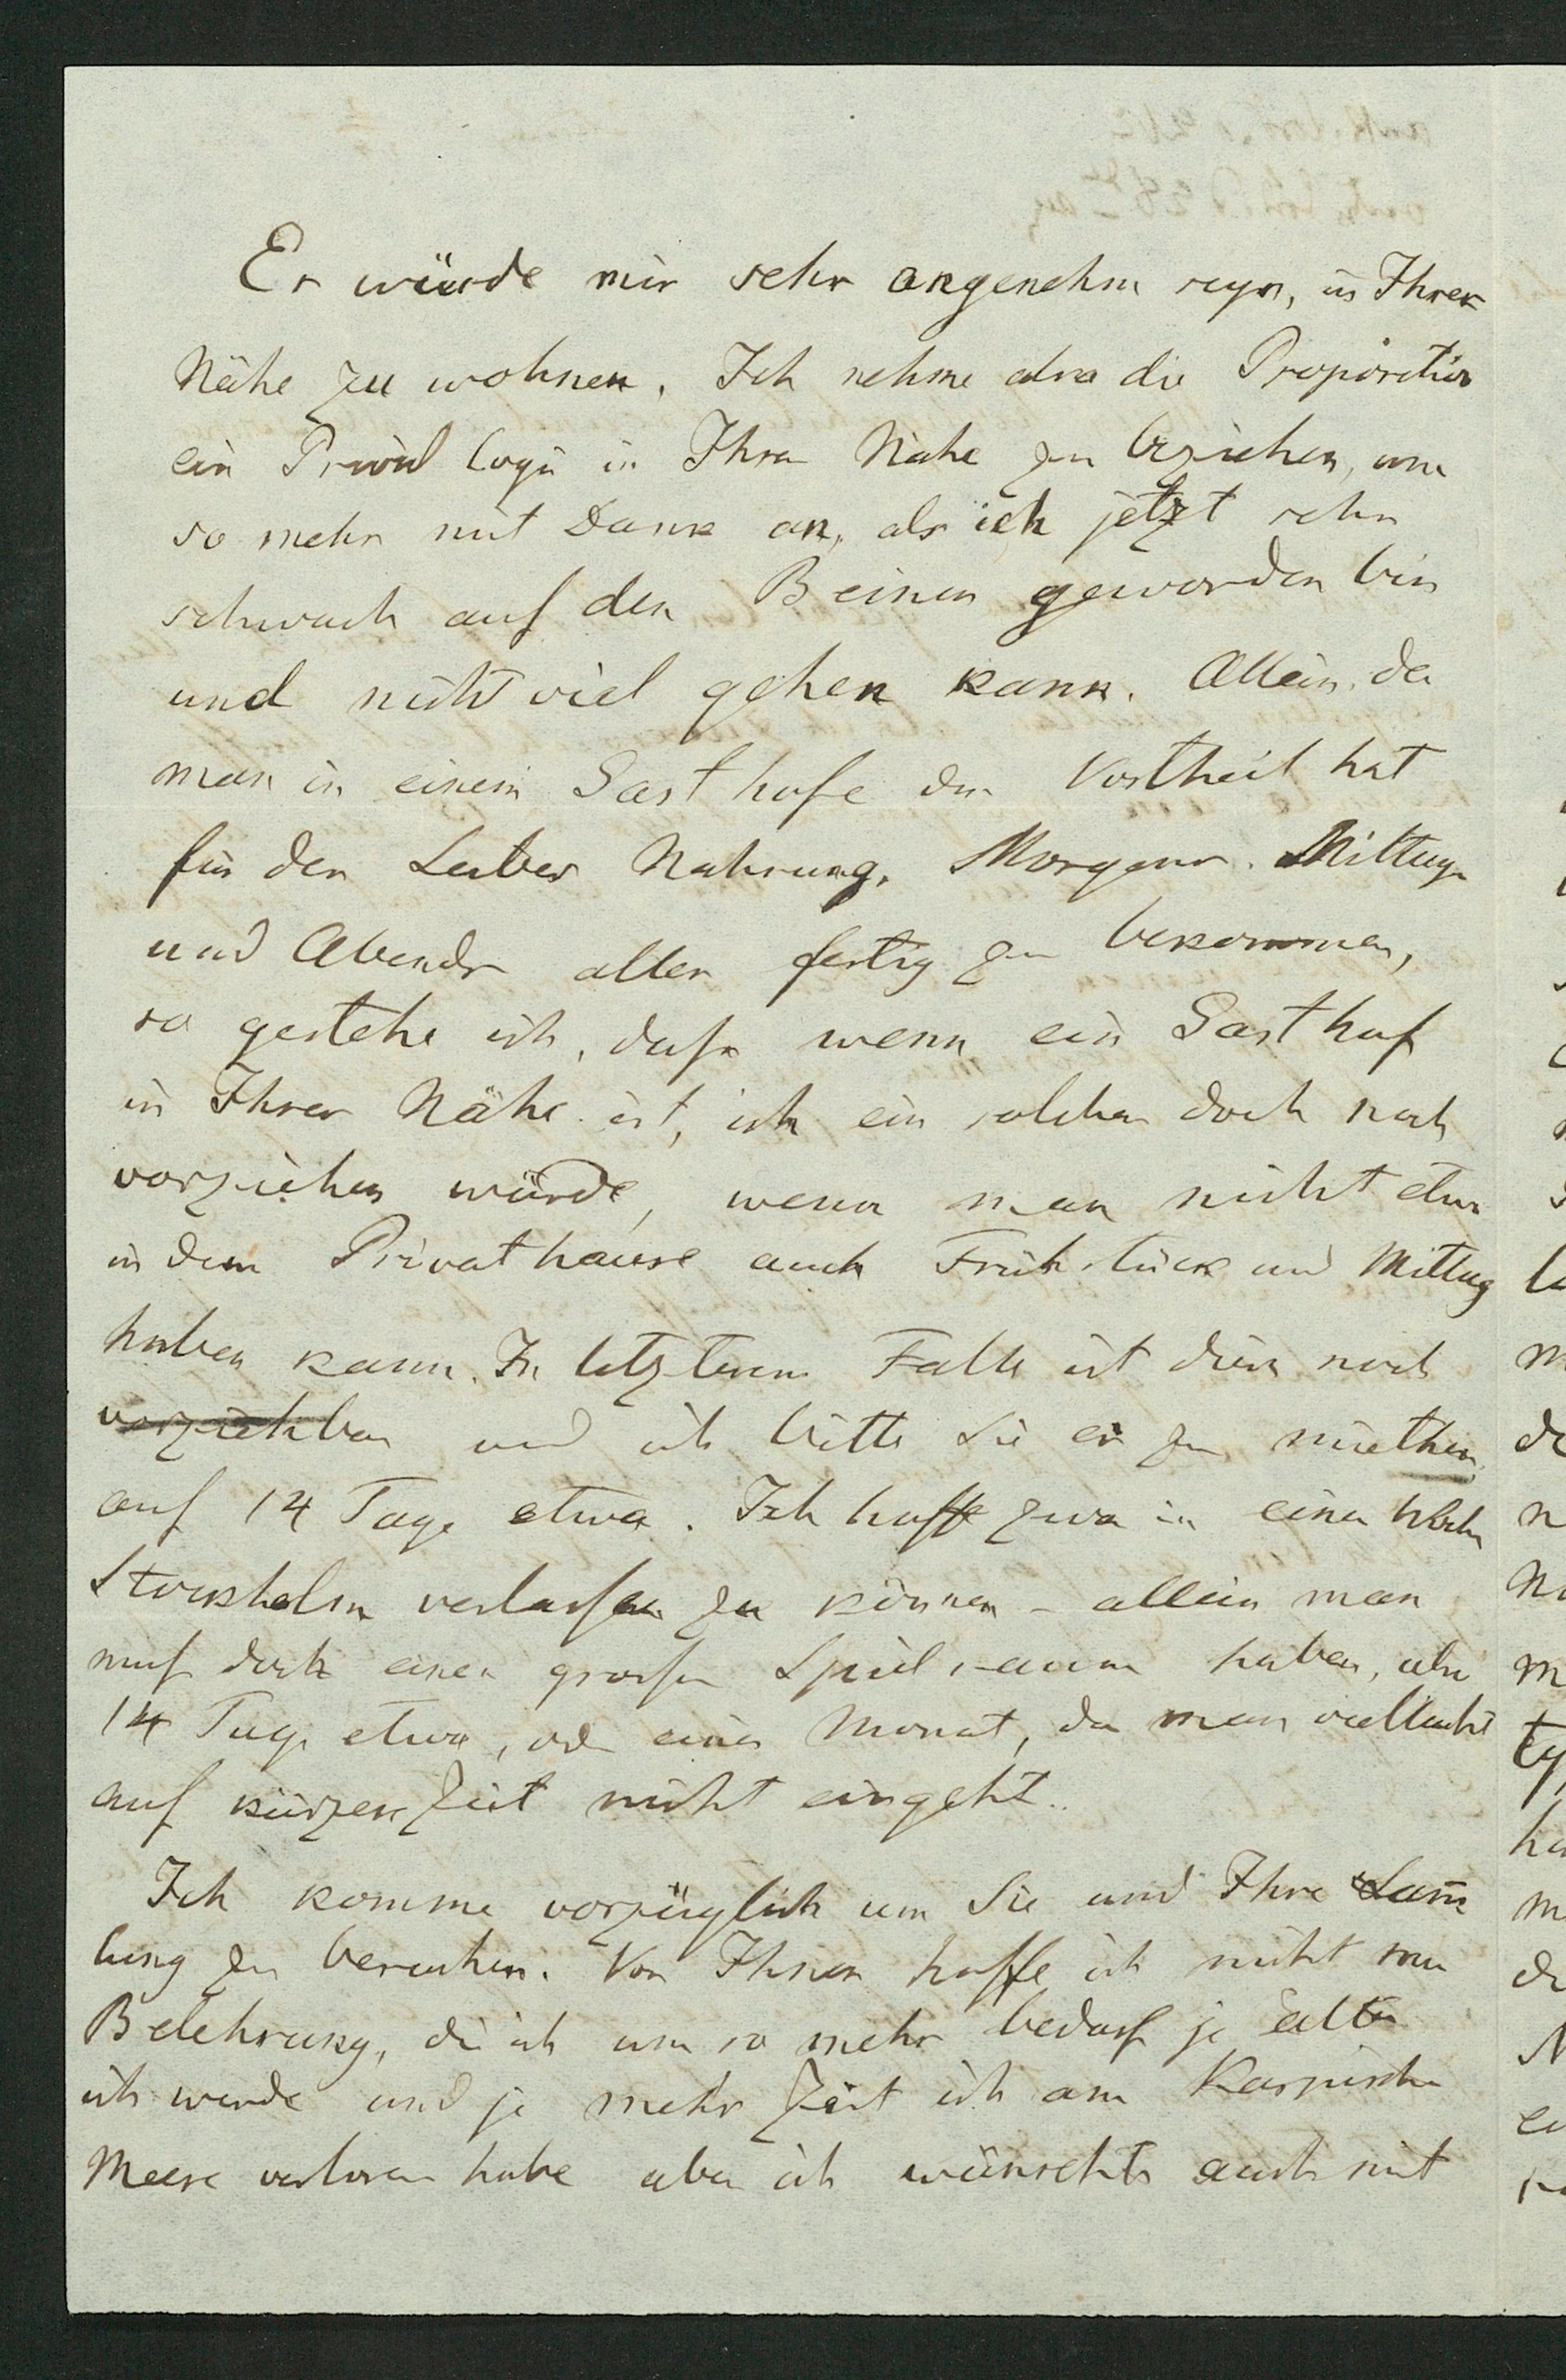 Es würde mir sehr angenehm seyn, in Ihrer
Nähe zu wohnen. Ich nehme also die Proposition
ein Privat logis in Ihrer Nähe zu beziehen, um
so mehr mit Dank an, als ich jetzt sehr
schwach auf den Beinen geworden bin
und nicht viel gehen kann. Allein, da
man in einem Gasthofe den Vortheil hat
für des Leibes Nahrung, Morgens, Mittags
und Abends alles fertig zu bekommen,
so gestehe ich, dass wenn ein Gasthof
in Ihrer Nähe ist, ich ein solches doch noch
vorziehen würde, wenn man nicht etwa
in dem Privathause auch Frühstück und Mittag
haben kann. In letzterem Falle ist dies noch
vorziehbar und ich bitte Sie es zu miethen,
auf 14 Tage etwa. Ich hoffe zwar in einer Woche
Stockholm verlassen zu können – allein man
muß doch einen großen Spielraum haben, also
14 Tage etwa, oder einen Monat, da man vielleicht
auf kürzere Zeit nicht eingeht.
Ich komme vorzüglich um Sie und Ihre Sam̄
lung zu besuchen. Von Ihnen hoffe ich nicht nur
Belehrung, die ich um so mehr bedarf je älter
ich werde und je mehr Zeit ich am Kaspischen
Meere verloren habe aber ich wünschte auch mit